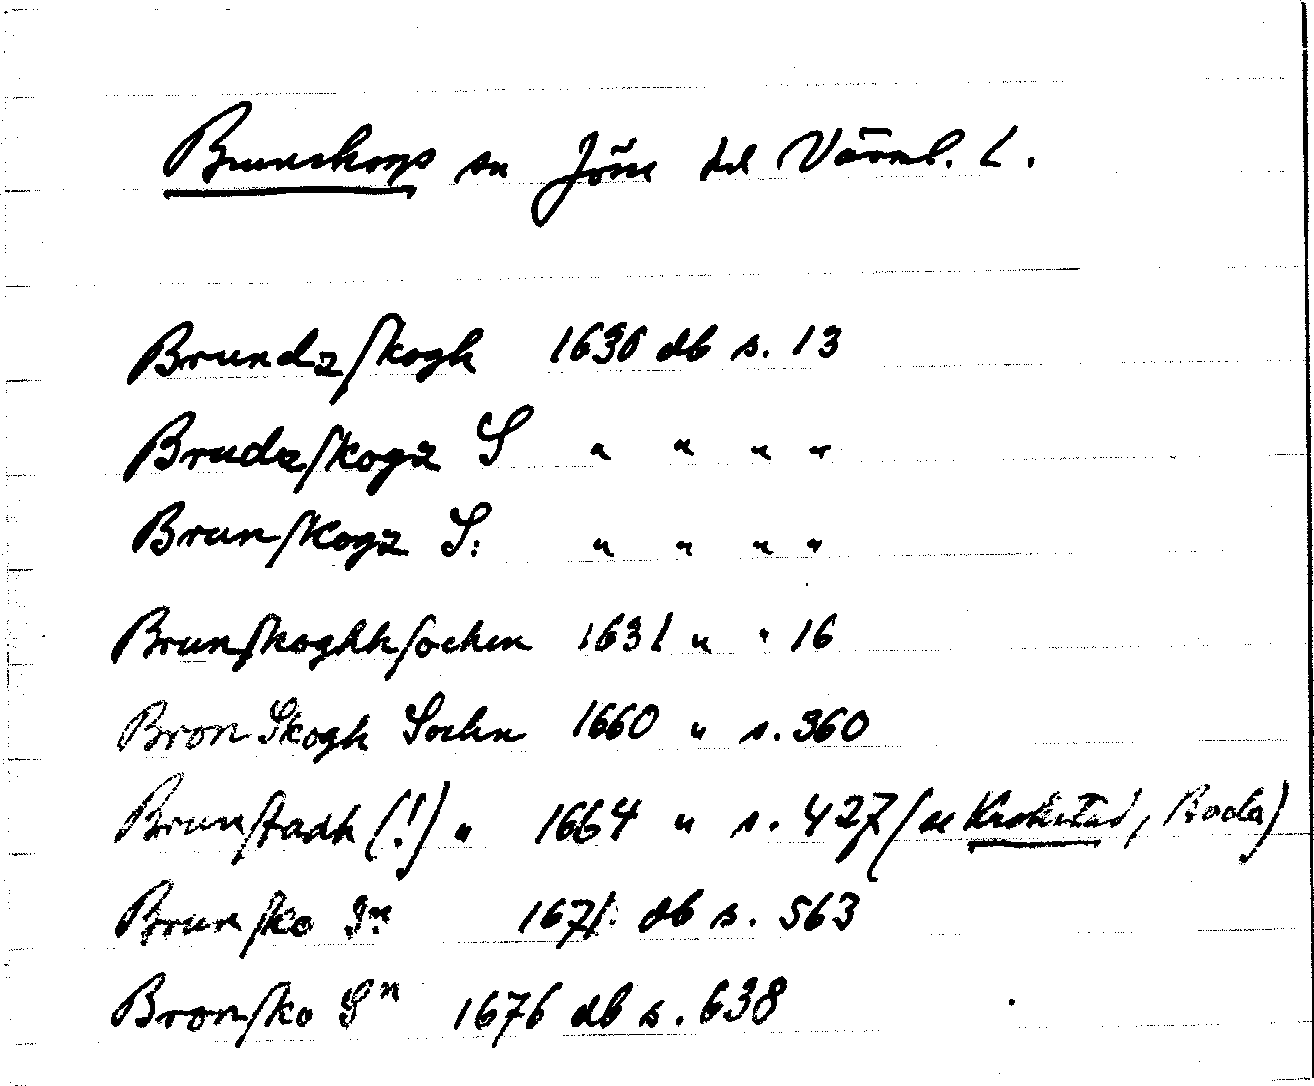 Brunskogs sn Jösse hd Värml. l.
Brundzſkogh 1630 db s. 13
Brudzſkogz S " " " "
Brunſkogz S: " " " "
Brunſkoghhſochen 1631 " " 16
Bron Skogh Sochn 1660 " s. 360
Brunſtadh (!) " 1664 " s. 427 (se Krokstad, Boda)
Brunſko Sn 1671 db s. 563
Bronſko Sn 1676 db s. 638